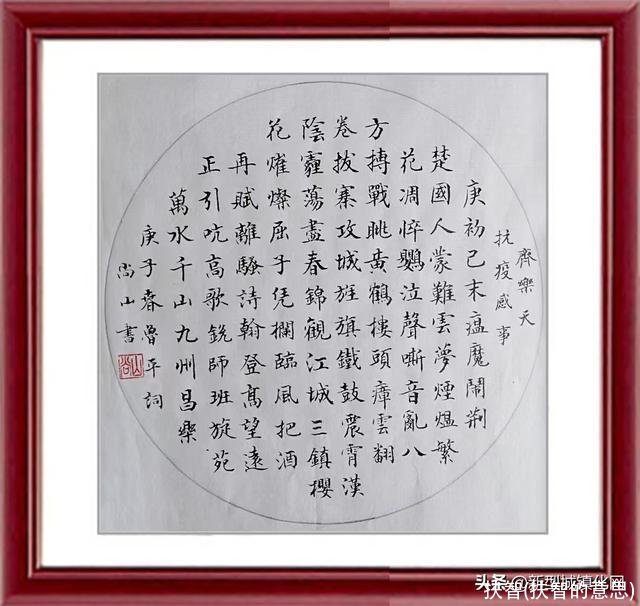 齊樂天
抗疫感事
庚初己末瘟魔鬧荆
楚國人蒙難雲夢煙煴繁
花凋悴鸚泣聲嘶音亂八
方搏戰眺黄鶴樓頭瘴雲翻
卷拔寨攻城旌旗鐵鼓震霄漢
陰霾蕩盡春錦觀江城三鎮櫻
花燿燦屈子凭欄臨風把酒
再賦離騷詩翰登髙望遠
正引吭高歌銳師班旋苑
萬水千山九州昌樂
庚子春魯平詞
尚山書
头条 @新型城镇化网
扶智(扶智的意思)